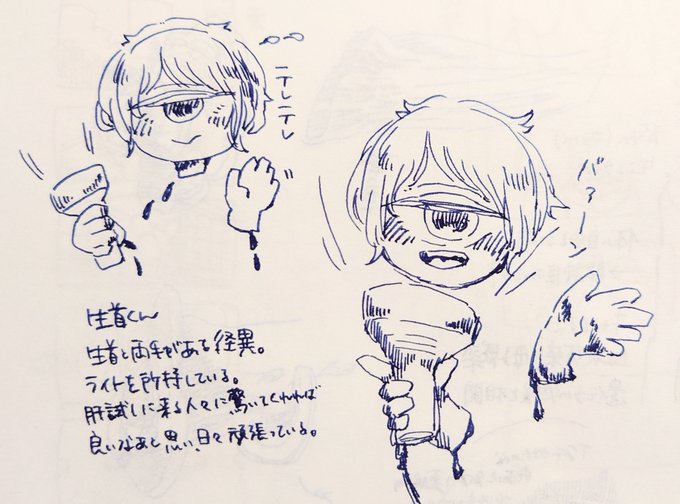 テレテレ
バァーン
生首くん
生首と両手がある怪異。
ライトを所持している。
肝試しに来る人々に驚いてくれれば
良いなあと思い、日々頑張っている。